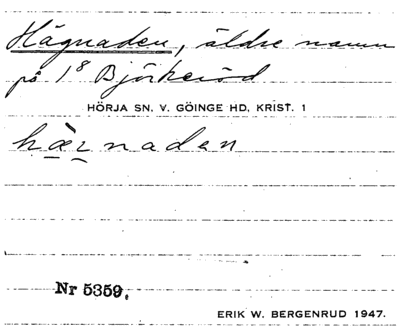 Hägnaden, äldre namn
på 1⁸ Björkeröd
HÖRJA SN. V. GÖINGE HD, KRIST. 1
hæ̀rnaden
Nr 5359.
ERIK W. BERGENRUD 1947.